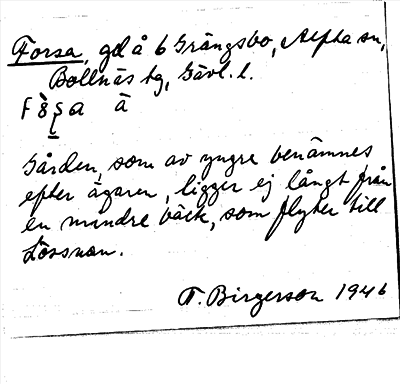 Forsa, gd å 6 Grängsbo, Alfta sn,
Bollnäs tg, Gävl. l.
à
Gården, som av yngre benämnes
efter ägaren, ligger ej långt från
en mindre bäck, som flyter till
Lössnan.
T. Birgerson 1946